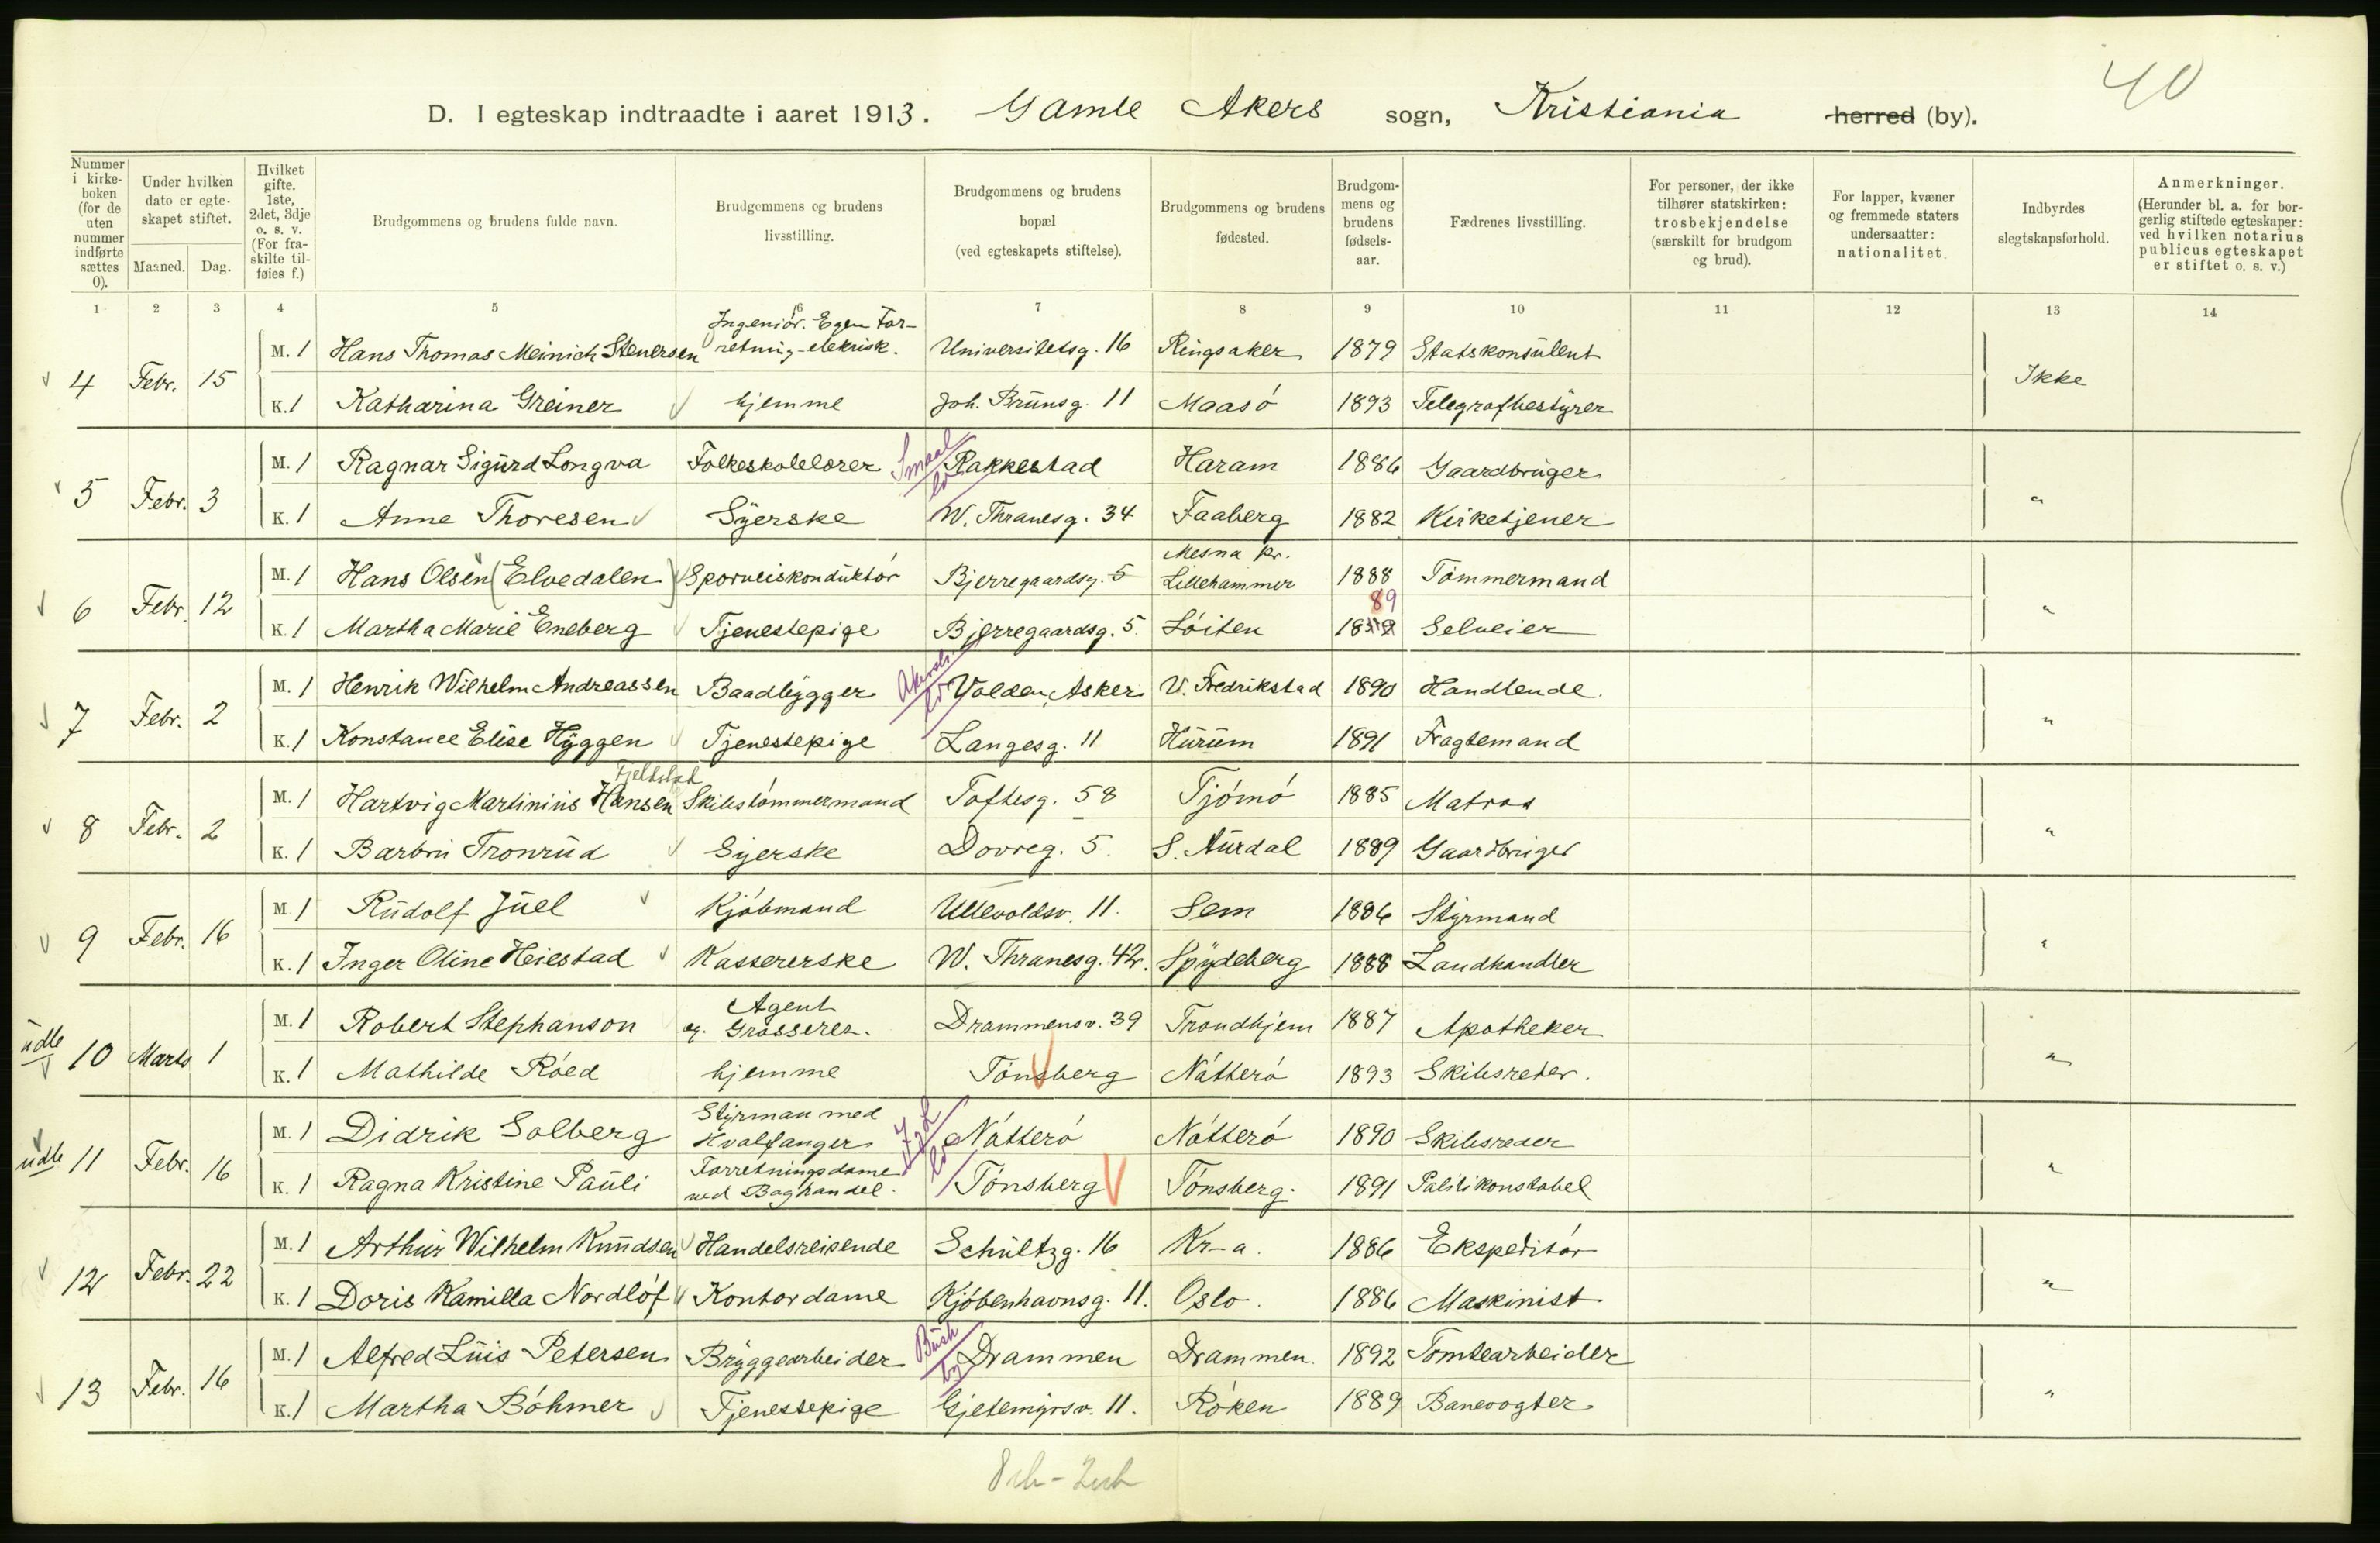 40
D. I egteskap indtraadte i aaret 1913. Gamle Akers sogn, Kristiania herred (by).
Nummer i kirkeboken (for de uten nummer indførte sættes 0).
Under hvilken dato er egteskapet stiftet.
Maaned. Dag.
Hvilket gifte. 1ste, 2det, 3dje o. s. v. (For fraskilte tilføies f.)
Brudgommens og brudens fulde navn.
Brudgommens og brudens livsstilling.
Brudgommens og brudens bopæl (ved egteskapets stiftelse).
Brudgommens og brudens fødested.
Brudgommens og brudens fødselsaar.
Fædrenes livsstilling.
For personer, der ikke tilhører statskirken: trosbekjendelse (særskilt for brudgom og brud).
For lapper, kvæner og fremmede staters undersaatter: nationalitet.
Indbyrdes slegtskapsforhold.
Anmerkninger. (Herunder bl. a. for borgerlig stiftede egteskaper: ved hvilken notarius publicus egteskapet er stiftet o. s. v.)
1 2 3 4 5 6 7 8 9 10 11 12 13 14
4 Febr. 15 M. 1 Hans Thomas Meinich Stenersen Ingeniör. Egen Forretning-elekrisk. Universitetsg. 16 Ringsaker 1879 Statskonsulent Ikke
K. 1 Katharina Greiner hjemme Joh. Brunsg. 11 Maasö 1893 Telegrafbestyrer
5 Febr. 3 M. 1 Ragnar Sigurd Longva Folkeskolelærer Smaal Rakkestad Haram 1886 Gaardbruger "
K. 1 Anne Thoresen Syerske W. Thranesg. 34 Faaberg 1882 Kirketjener
6 Febr. 12 M. 1 Hans Olsen (Elvedalen) Sporveiskonduktör Bjerregaardsg. 5 Mesna pr. Lillehammer 1888 Tömmermand "
K. 1 Martha Marie Eneberg Tjenestepige Bjerregaardsg. 5. Löiten 1859 89 Selveier
7 Febr. 2 M. 1 Henrik Wilhelm Andreassen Baadbygger Volden, Asker V. Fredrikstad 1890 Handlende. "
K. 1 Konstance Elise Hyggen Tjenestepige Langesg. 11 Hurum 1891 Fragtemand
8 Febr. 2 M. 1 Hartvig Martinius Hansen Fjeldstad Skibstömmermand Toftesg. 58 Tjömö 1885 Matros "
K. 1 Barbro Tronrud Syerske Dovreg. 5. S. Aurdal 1889 Gaardbruger
9 Febr. 16 M. 1 Rudolf Juel Kjöbmand Ullevoldsv. 11. Sem 1886 Styrmand "
K. 1 Inger Oline Heiestad Kassererske W. Thranesg. 42. Spydeberg 1888 Landhandler
udb 10 Marts 1 M. 1 Robert Stephanson Agent og. Grosserer. Drammensv. 39 Trondhjem 1887 Apotheker "
K. 1 Mathilde Röed hjemme Tönsberg Nötterö 1893 Skibsreder.
udb 11 Febr. 16 M. 1 Didrik Solberg Styrman med Hvalfanger Nötterö Nötterö 1890 Skibsreder "
K. 1 Ragna Kristine Pauli Forretningsdame ved Boghandel. Tönsberg Tönsberg. 1891 Politikonstabel
12 Febr. 22 M. 1 Arthur Wilhelm Knudsen Handelsreisende Schultzg. 16 Kr-a. 1886 Ekspeditör "
K. 1 Doris Kamilla Nordlöf Kontordame Kjöbenhavnsg. 11. Oslo. 1886 Maskinist
13 Febr. 16 M. 1 Alfred Luis Petersen Bryggearbeider Busk by Drammen Drammen. 1892 Tomtearbeider "
K. 1 Martha Böhmer Tjenestepige Gjetemyrsv. 11. Röken 1889 Banevogter